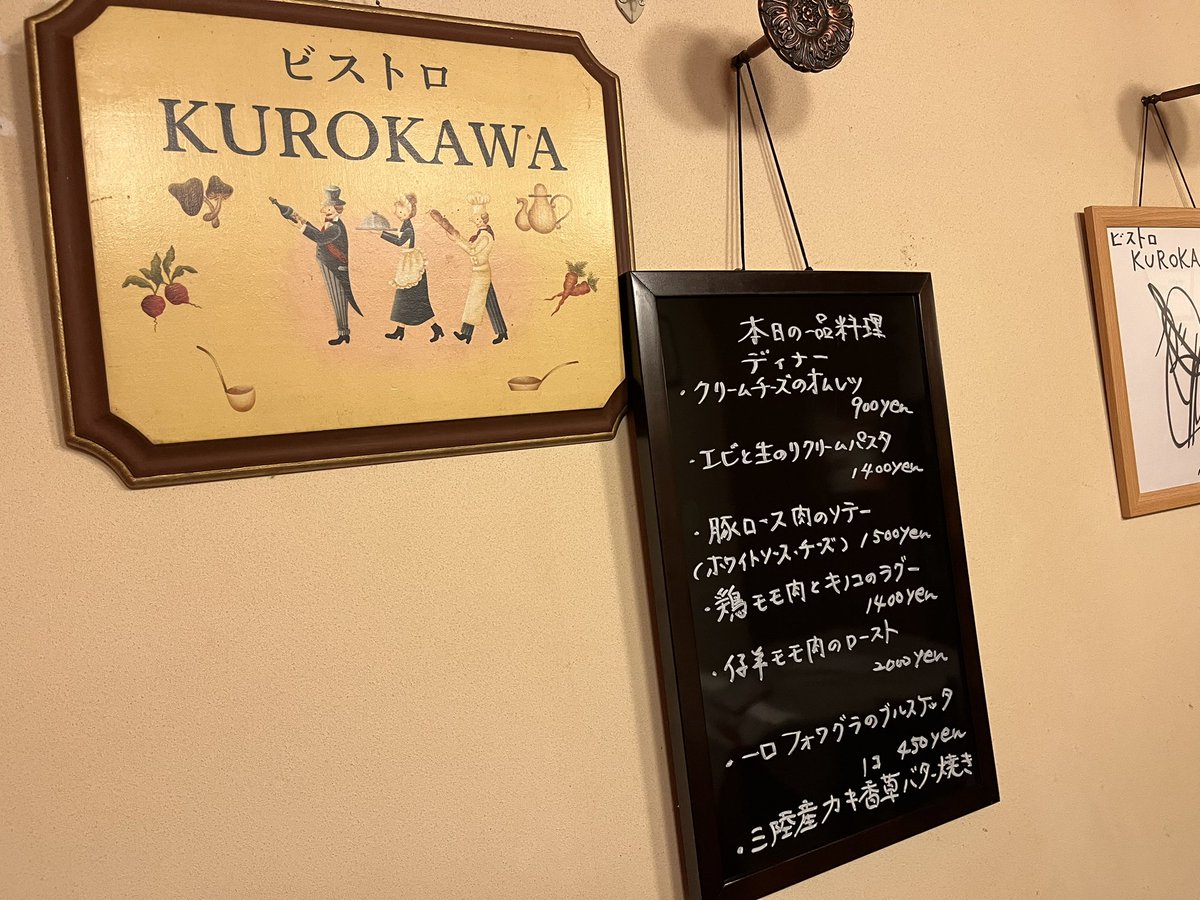 ビストロ
KUROKAWA
本日の一品料理
ディナー
・クリームチーズのオムレツ
900yen
・エビと生のりクリームパスタ
1400yen
・豚ロース肉のソテー
(ホワイトソース・チーズ) 1500yen
・鶏モモ肉とキノコのラグー
1400yen
・仔羊モモ肉のロースト
2000yen
・一口フォワグラのブルスケッタ
1コ 450yen
・三陸産カキ香草バター焼き
ビストロ
KUROKA